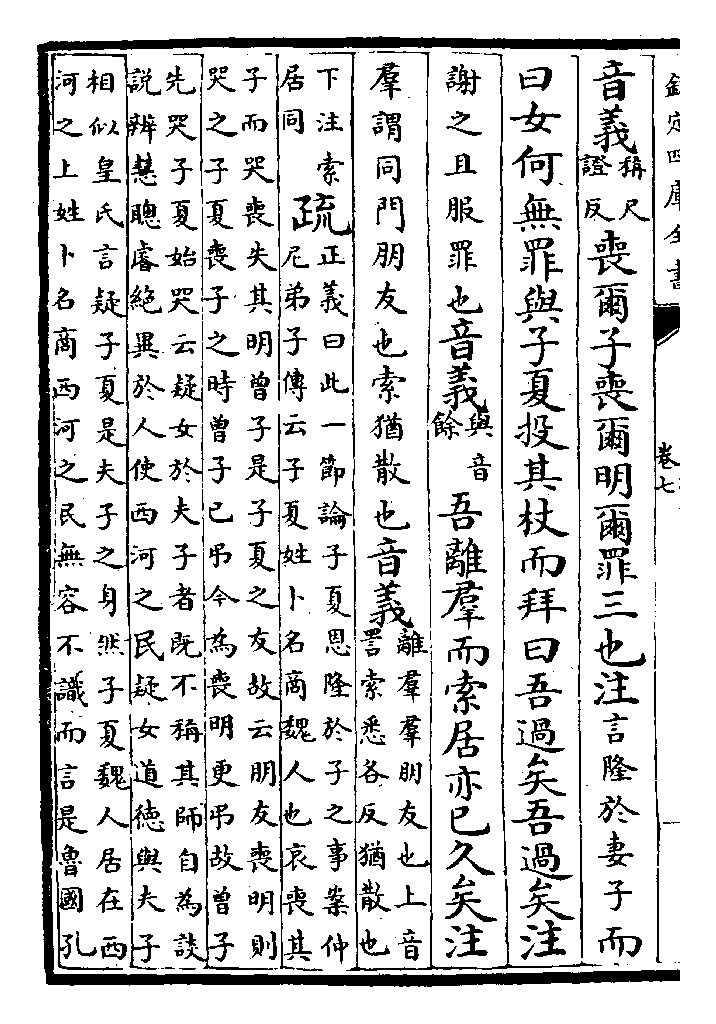 欽定四庫全書
卷七
音義稱尺證反喪爾子喪爾明爾罪三也注言隆於妻子而
曰女何無罪與子夏投其杖而拜曰吾過矣吾過矣注
謝之且服罪也音義與音餘吾離羣而索居亦已久矣注
羣謂同門朋友也索猶散也音義離羣羣朋友也上音
詈索悉各反猶散也
下注索
居同
疏正義曰此一節論子夏恩隆於子之事案仲
尼弟子傳云子夏姓卜名商魏人也哀喪其
子而哭喪失其明曾子是子夏之友故云朋友喪明則
哭之子夏喪子之時曾子已弔今為喪明更弔故曾子
先哭子夏始哭云疑女於夫子者既不稱其師自為談
說辨慧聰睿絕異於人使西河之民疑女道德與夫子
相似皇氏言疑子夏是夫子之身然子夏魏人居在西
河之上姓卜名商西河之民無容不識而言是魯國孔